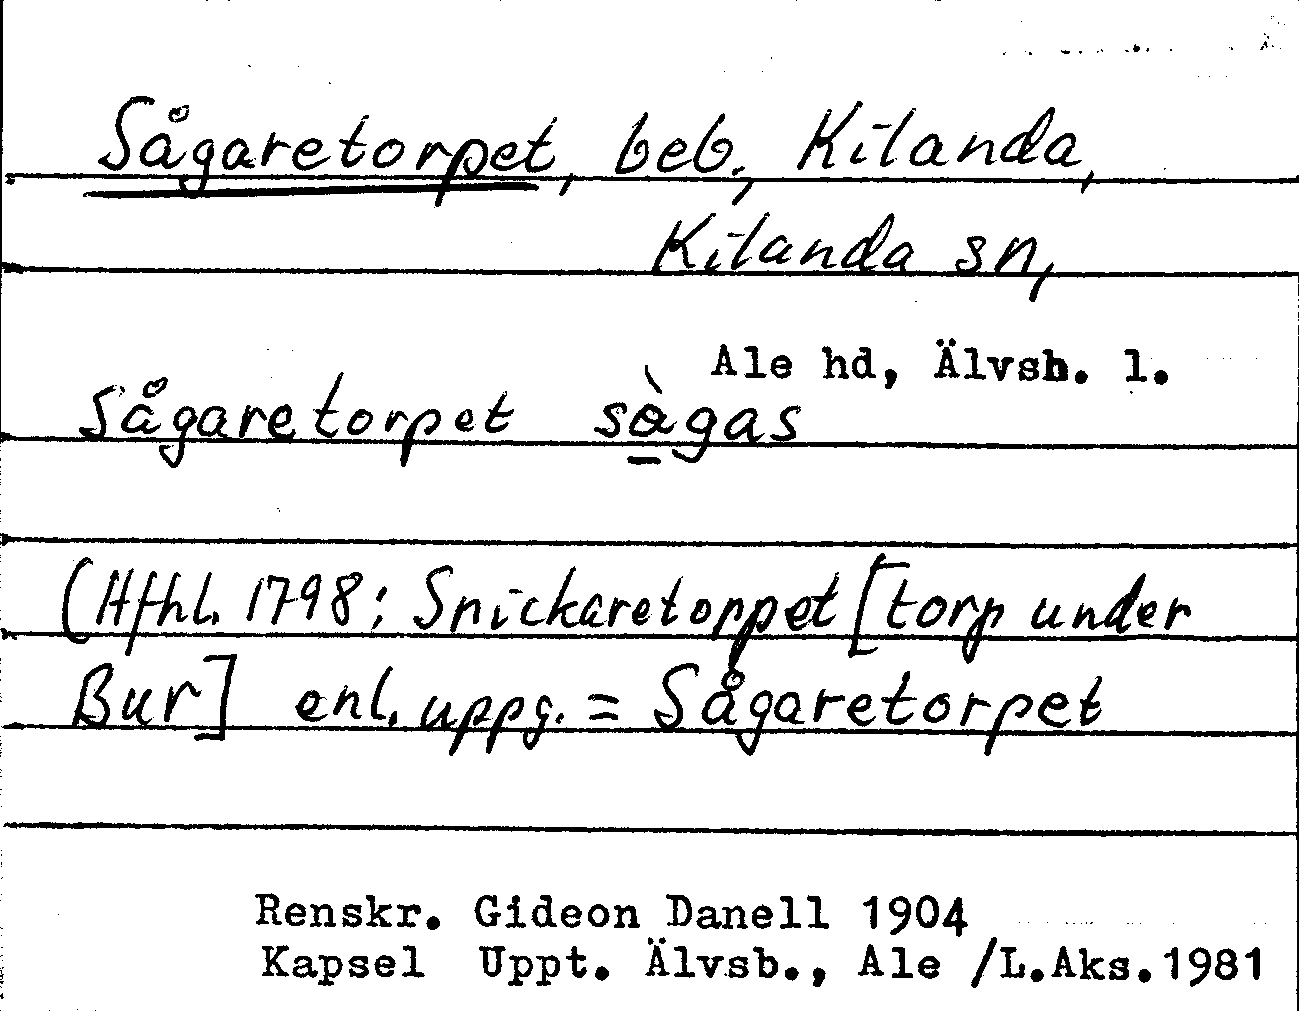 Sågaretorpet, beb., Kilanda,
Kilanda sn,
Ale hd, Älvsb. l.
Sågaretorpet sàgas
(Hfhl. 1798: Snickaretoppet [torp under
Bur] enl. uppg. = Sågaretorpet
Renskr. Gideon Danell 1904
Kapsel Uppt. Älvsb., Ale /L.Aks.1981